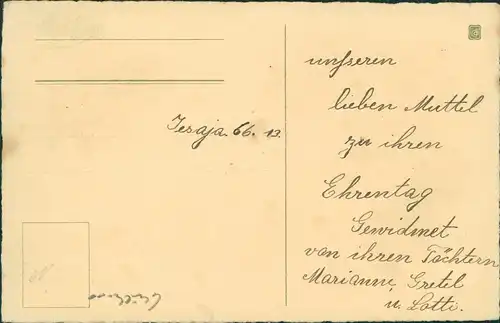 Jesaja. 66. 13
unsseren
lieben Muttel
zu ihren
Ehrentag
Gewidmet
van ihren Töchtern
Marianne, Gretel
u. Lotti.